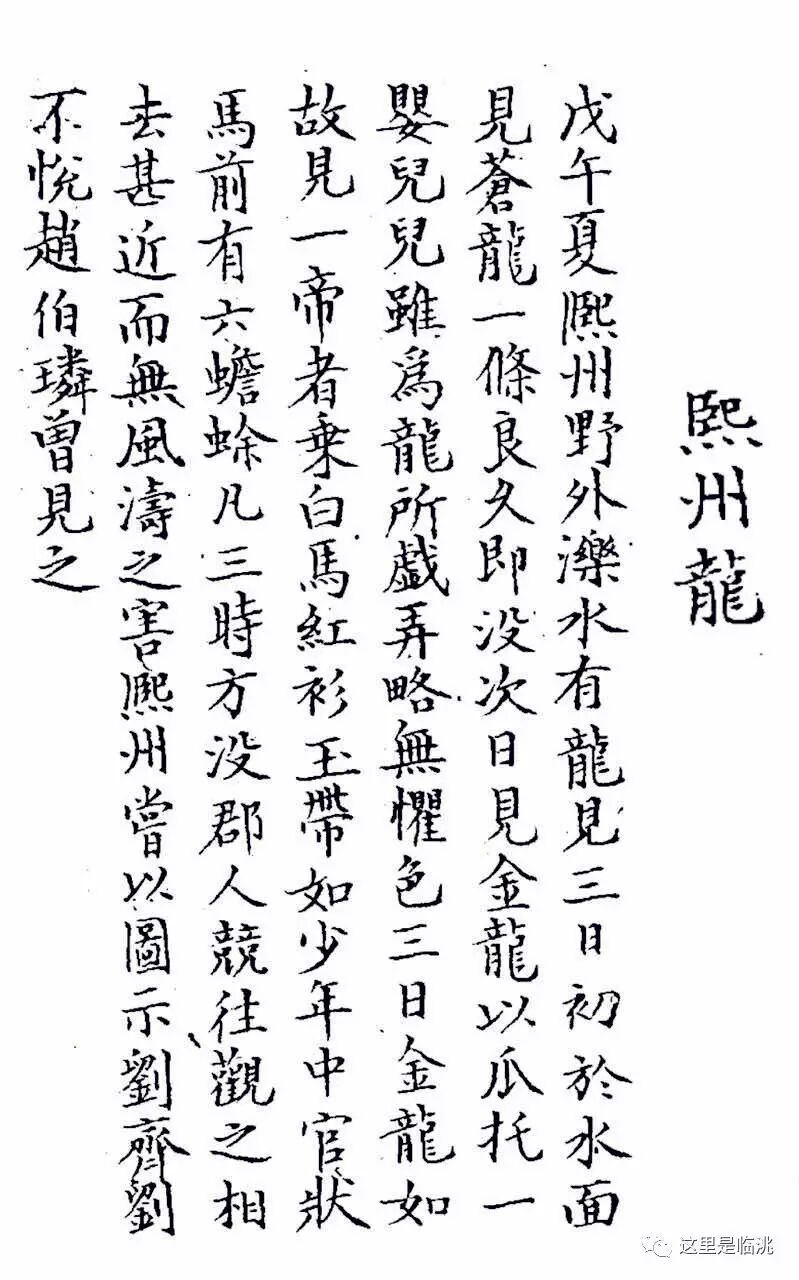 熙州龍
戊午夏熙州野外濼水有龍見三日初於水面
見蒼龍一條良久即没次日見金龍以瓜托一
嬰兒兒雖爲龍所戲弄略無懼色三日金龍如
故見一帝者乘白馬紅衫玉帶如少年中官狀
馬前有六蟾蜍凡三時方没郡人競往觀之相
去甚近而無風濤之害熙州嘗以圖示劉齊劉
不悅趙伯璘曽見之
这里是临洮